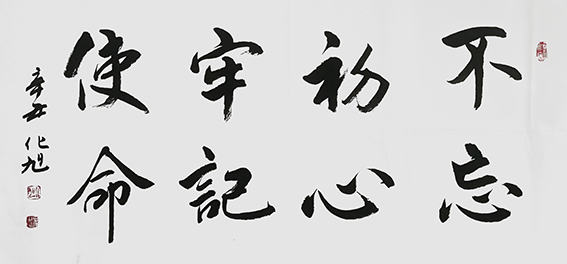 不忘
初心
牢記
使命
辛丑 化旭